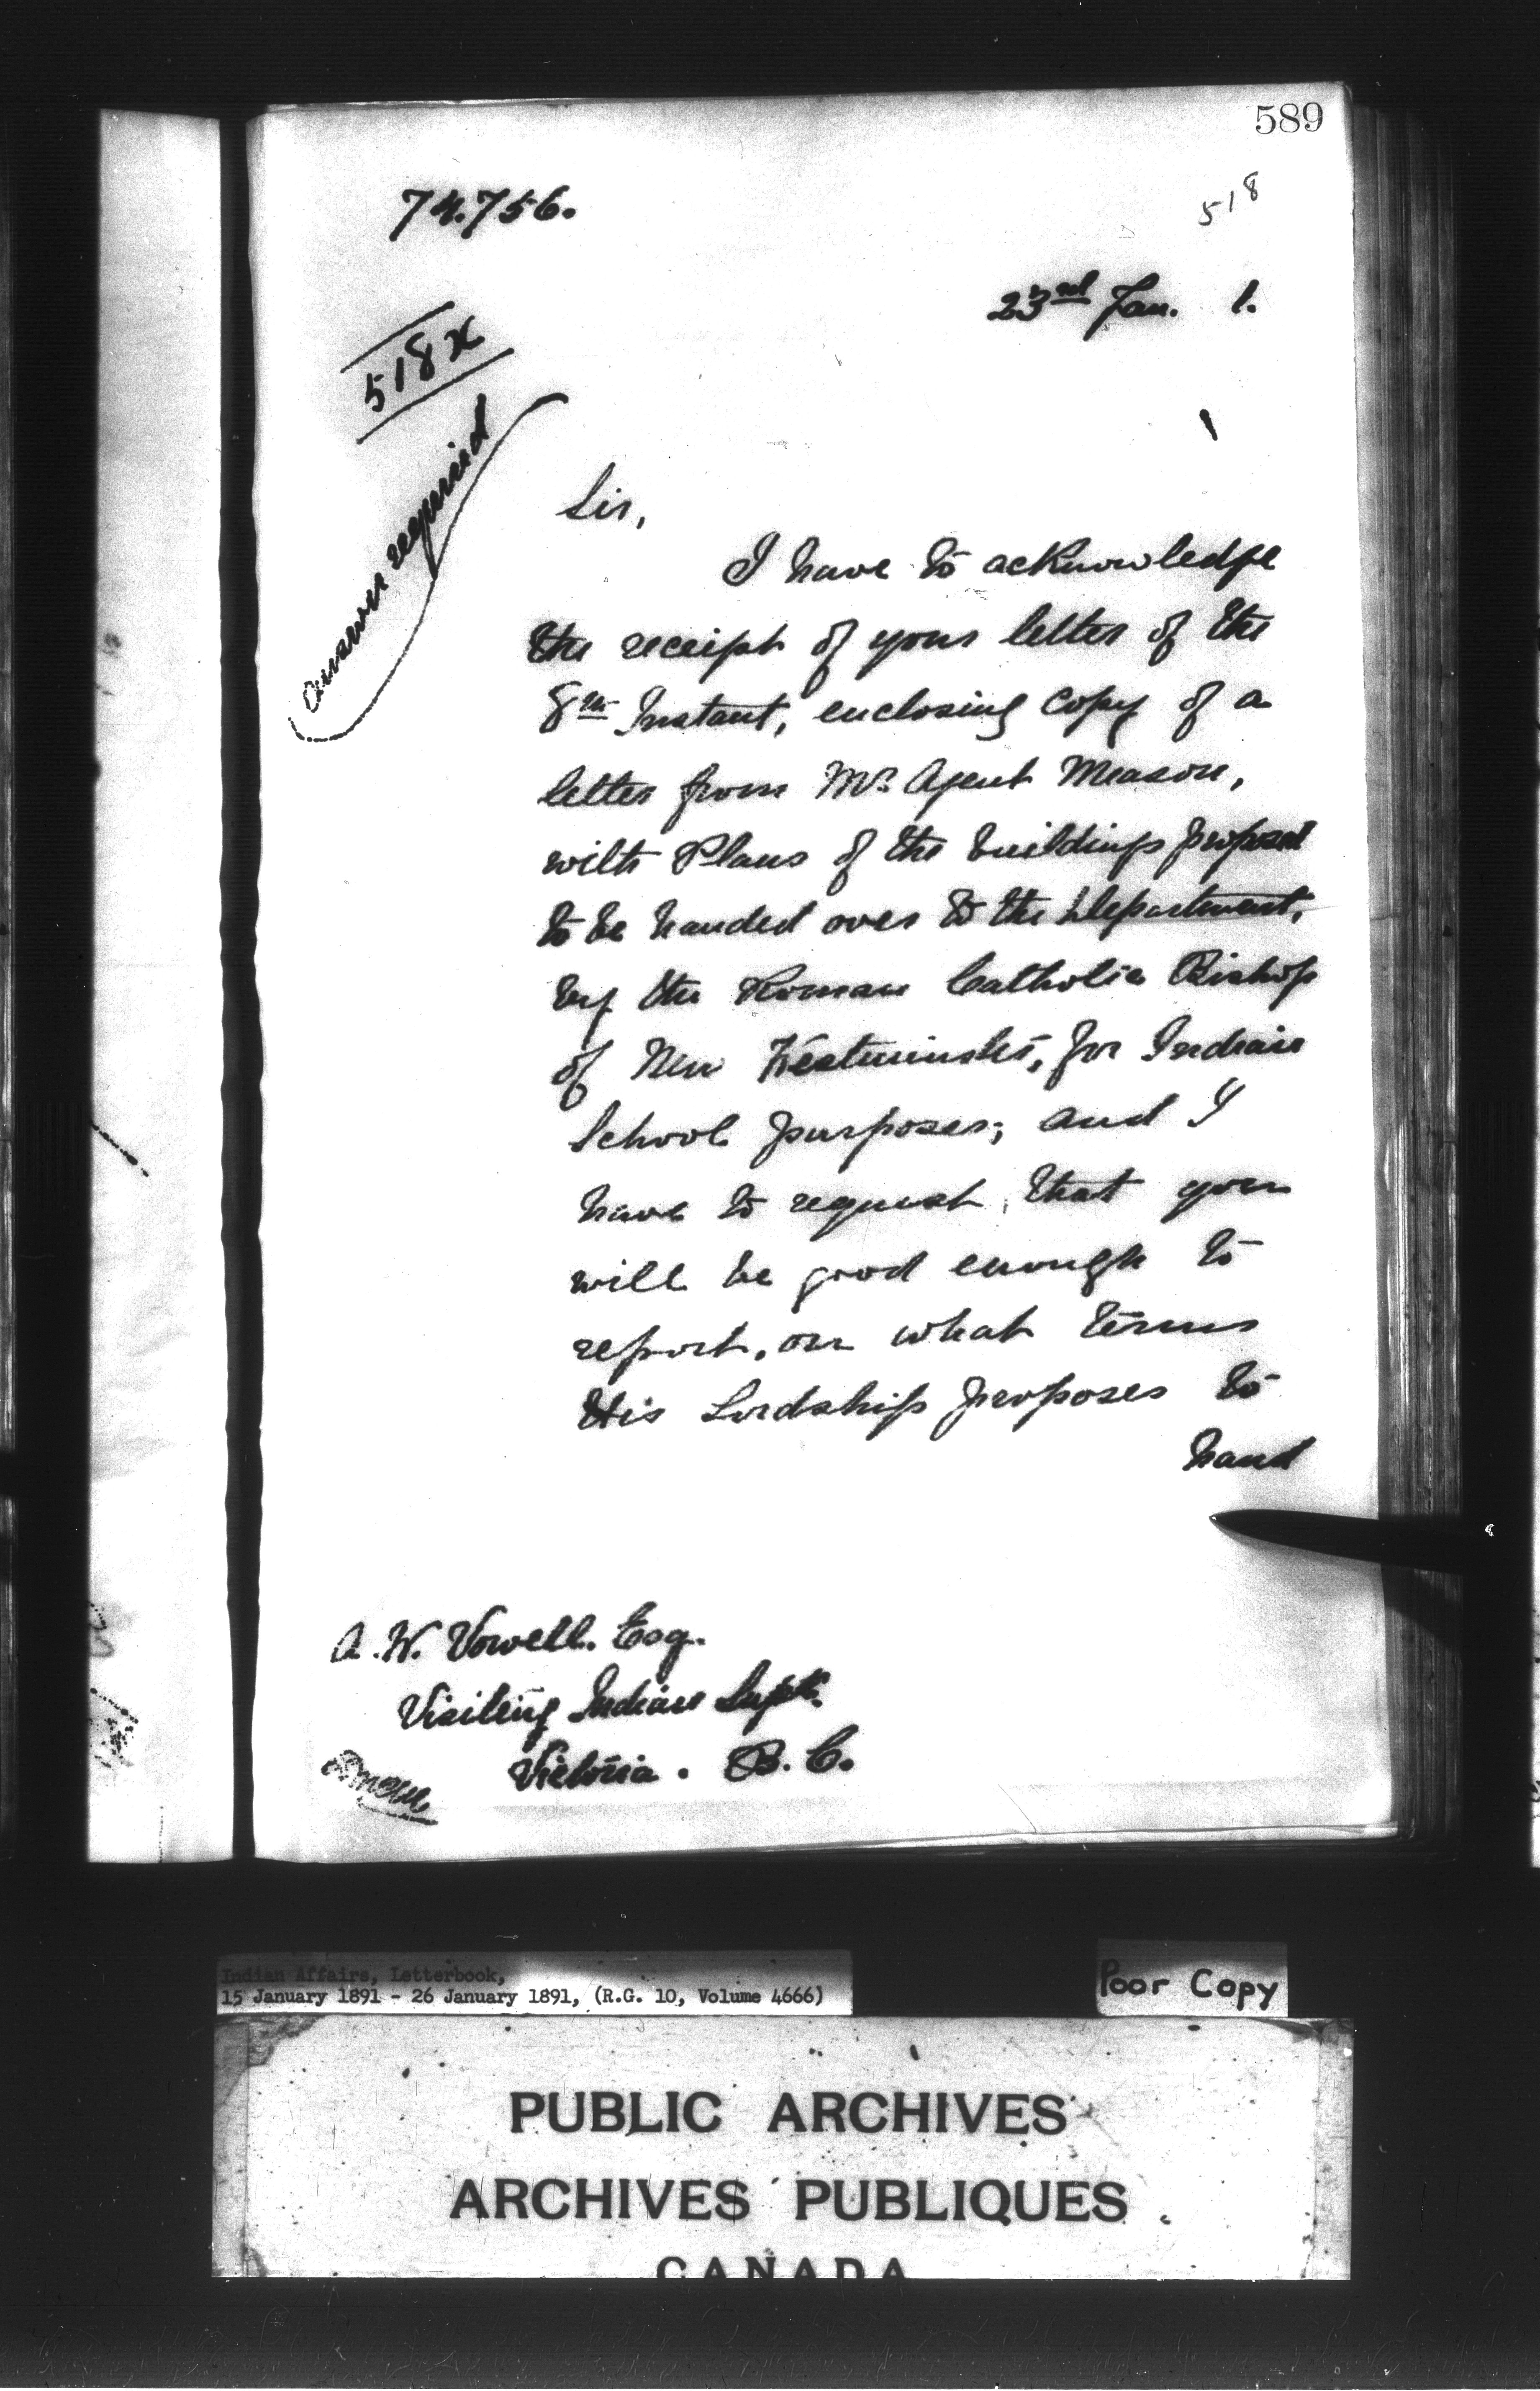 589
74.756.
518
23rd Jan. 1.
518x
answer required
Sir,
I have to acknowledge
the receipt of your letter of the
8th Instant, enclosing copy of a
letter from Mr. Agent Meason,
with Plans of the buildings proposed
to be handed over to the Department,
by the Roman Catholic Bishop
of New Westminster, for Indian
School purposes; and I
have to request, that you
will be good enough to
report, on what terms
His Lordship proposes to
hand
A. W. Vowell. Esq.
Visiting Indian Supt.
Victoria. B. C.
Indian Affairs, Letterbook,
15 January 1891 - 26 January 1891, (R.G. 10, Volume 4666)
Poor Copy
PUBLIC ARCHIVES
ARCHIVES PUBLIQUES
CANADA